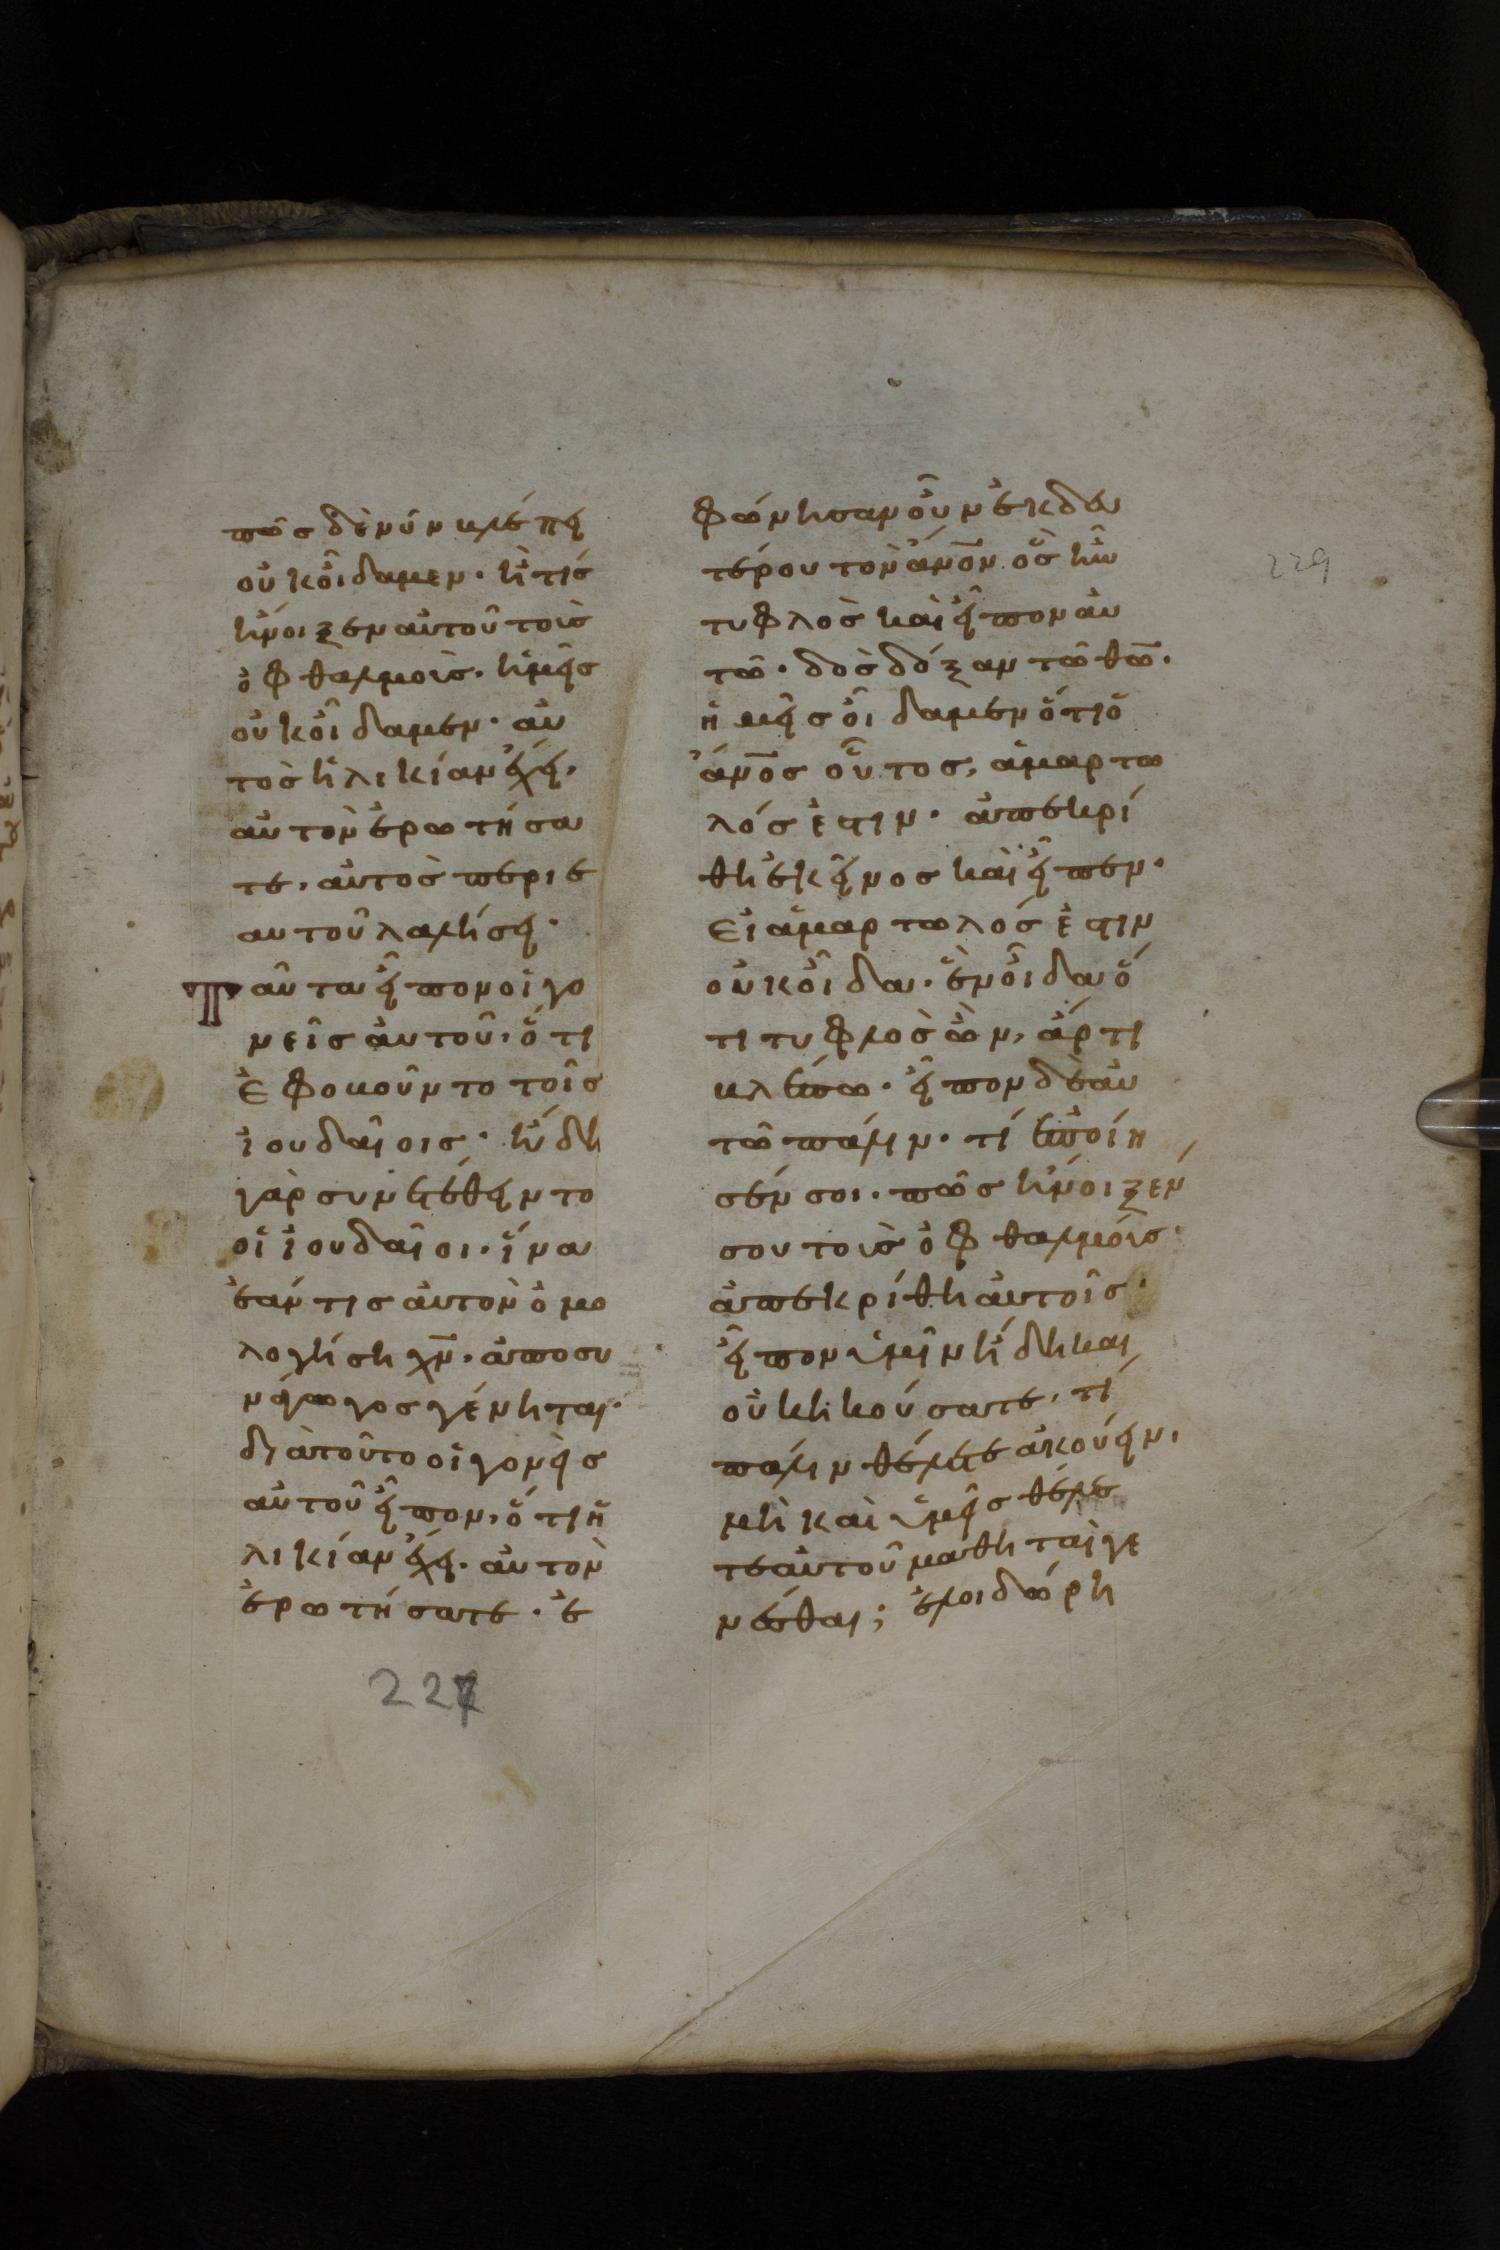 πῶς δὲ νῦν βλέπει
οὐκ οἴδαμεν· ἢ τίς
ἤνοιξεν αὐτοῦ τοὺς
ὀφθαλμοὺς· ἡμεῖς
οὐκ οἴδαμεν· αὐ
τὸς ἡλικίαν ἔχει,
αὐτὸν ἐρωτήσα
τε, αὐτὸς περὶ ἑ
αυτοῦ λαλήσει·
Ταῦτα εἶπον οἱ γο
νεῖς αὐτοῦ, ὅτι
ἐφοβοῦντο τοῖς
ἰουδαίοις· ἤδη
γὰρ συνετέθειντο
οἱ ἰουδαῖοι· ἵνα
ἐάν τις αὐτὸν ὁμο
λογήση χν̅· ἀποσυ
νάγωγος γένηται·
διὰ τοῦτο οἱ γονεῖς
αὐτοῦ εἶπον, ὅτι ἡ
λικίαν ἔχει· αὐτὸν
ἐρωτήσατε· ἐ
227
φώνησαν οὖν ἐκ δευ
τέρου τὸν ἄνο̅ν ὃς ἦν
τυφλὸς καὶ εἶπον αὐ
τῶ· δὸς δόξαν τῶ θω̅·
ἡμεῖς οἴδαμεν ὅτι ὁ
ἄνο̅ς οὗτος, ἁμαρτω
λός ἐστιν· ἀπεκρί
θη ἐκεῖνος καὶ εἶπεν·
Εἰ ἁμαρτωλός ἐστιν
οὐκ οἶδα· ἓν οἶδα ὅ
τι τυφλὸς ὢν, ἄρτι
βλέπω· εἶπον δὲ αὐ
τῶ πάλιν· τί ἐποίη
σέν σοι· πῶς ἤνοιξέν
σου τοὺς ὀφθαλμούς·
ἀπεκρίθη αὐτοῖς·
εἶπον ὑμῖν ἤδη καὶ
οὐκ ἠκούσατε, τί
πάλιν θέλετε ἀκούειν,
μὴ καὶ ὑμεῖς θέλε
τε αὐτοῦ μαθηταὶ γε
νέσθαι; ἐλοιδώρη
229